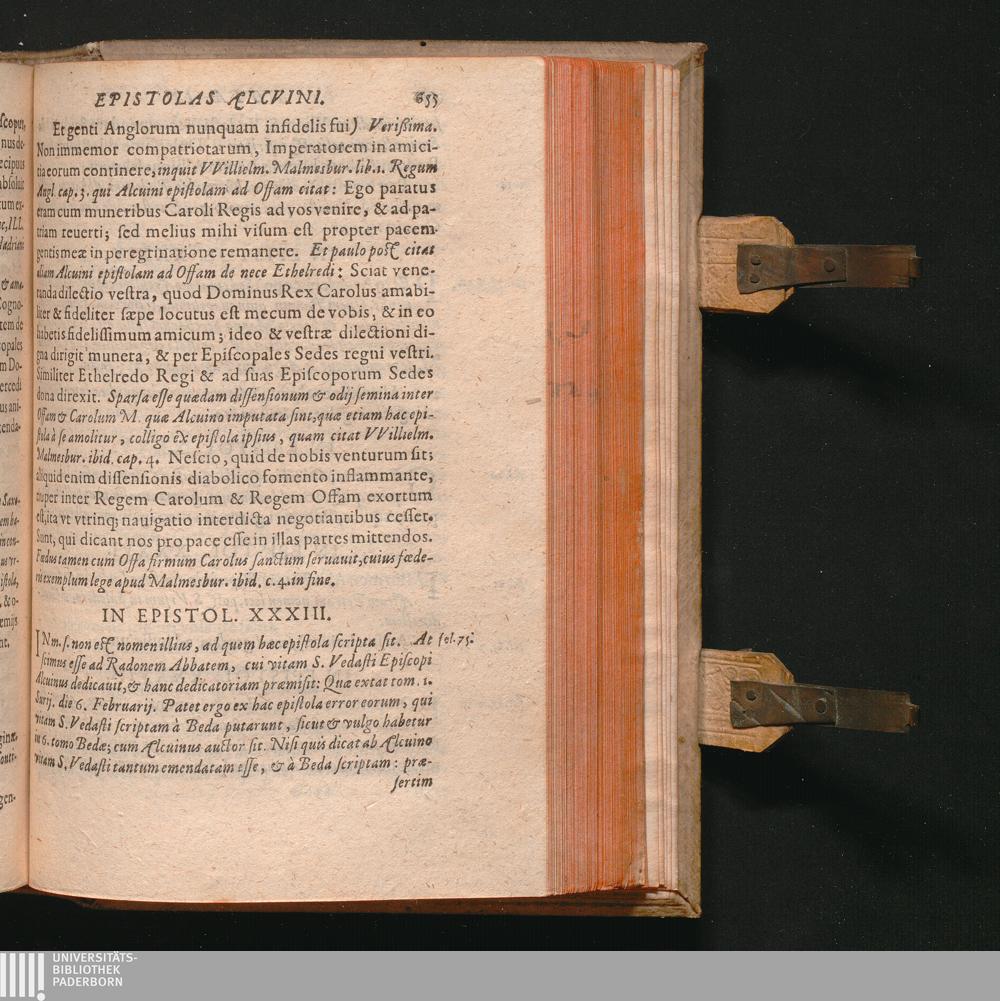 EPISTOLAS ÆLCVINI. 655
Et genti Anglorum nunquam infidelis fui) Verißima.
Non immemor compatriotarum, Imperatorem in amici-
tia eorum continere, inquit VVillielm. Malmesbur. lib.1. Regum
Angl. cap. 3. qui Alcuini epiſtolam ad Offam citat: Ego paratus
eram cum muneribus Caroli Regis ad vos venire, & ad pa-
triam reuerti; ſed melius mihi viſum eſt propter pacem
gentis meæ in peregrinatione remanere. Et paulo poſt citat
aliam Alcuini epiſtolam ad Offam de nece Ethelredi: Sciat vene-
randa dilectio veſtra, quod Dominus Rex Carolus amabi-
liter & fideliter ſæpe locutus eſt mecum de vobis, & in eo
habetis fideliſſimum amicum; ideo & veſtræ dilectioni di-
gna dirigit munera, & per Epiſcopales Sedes regni veſtri.
Similiter Ethelredo Regi & ad ſuas Epiſcoporum Sedes
dona direxit. Sparſa eſſe quædam diſſenſionum & odij ſemina inter
Offam & Carolum M. quæ Alcuino imputata ſint, quæ etiam hac epi-
ſtola à ſe amolitur, colligo ex epiſtola ipſius, quam citat VVillielm.
Malmesbur. ibid. cap. 4. Neſcio, quid de nobis venturum ſit;
aliquid enim diſſenſionis diabolico fomento inflammante,
nuper inter Regem Carolum & Regem Offam exortum
eſt, ita vt vtrinq; nauigatio interdicta negotiantibus ceſſet.
Sunt, qui dicant nos pro pace eſſe in illas partes mittendos.
Fœdus tamen cum Offa firmum Carolus ſanctum ſeruauit, cuius fœde-
ris exemplum lege apud Malmesbur. ibid. c. 4. in fine.
IN EPISTOL. XXXIII.
IN m. ſ. non eſt nomen illius, ad quem hæc epiſtola ſcripta ſit. At fol. 75.
ſcimus eſſe ad Radonem Abbatem, cui vitam S. Vedaſti Epiſcopi
Alcuinus dedicauit, & hanc dedicatoriam præmiſit: Quæ extat tom. 1.
Surij. die 6. Februarij. Patet ergo ex hac epiſtola error eorum, qui
vitam S. Vedaſti ſcriptam à Beda putarunt, ſicut & vulgo habetur
in 6. tomo Bedæ; cum Ælcuinus auctor ſit. Niſi quis dicat ab Ælcuino
vitam S. Vedaſti tantum emendatam eſſe, & à Beda ſcriptam: præ-
ſertim
UNIVERSITÄTS-
BIBLIOTHEK
PADERBORN